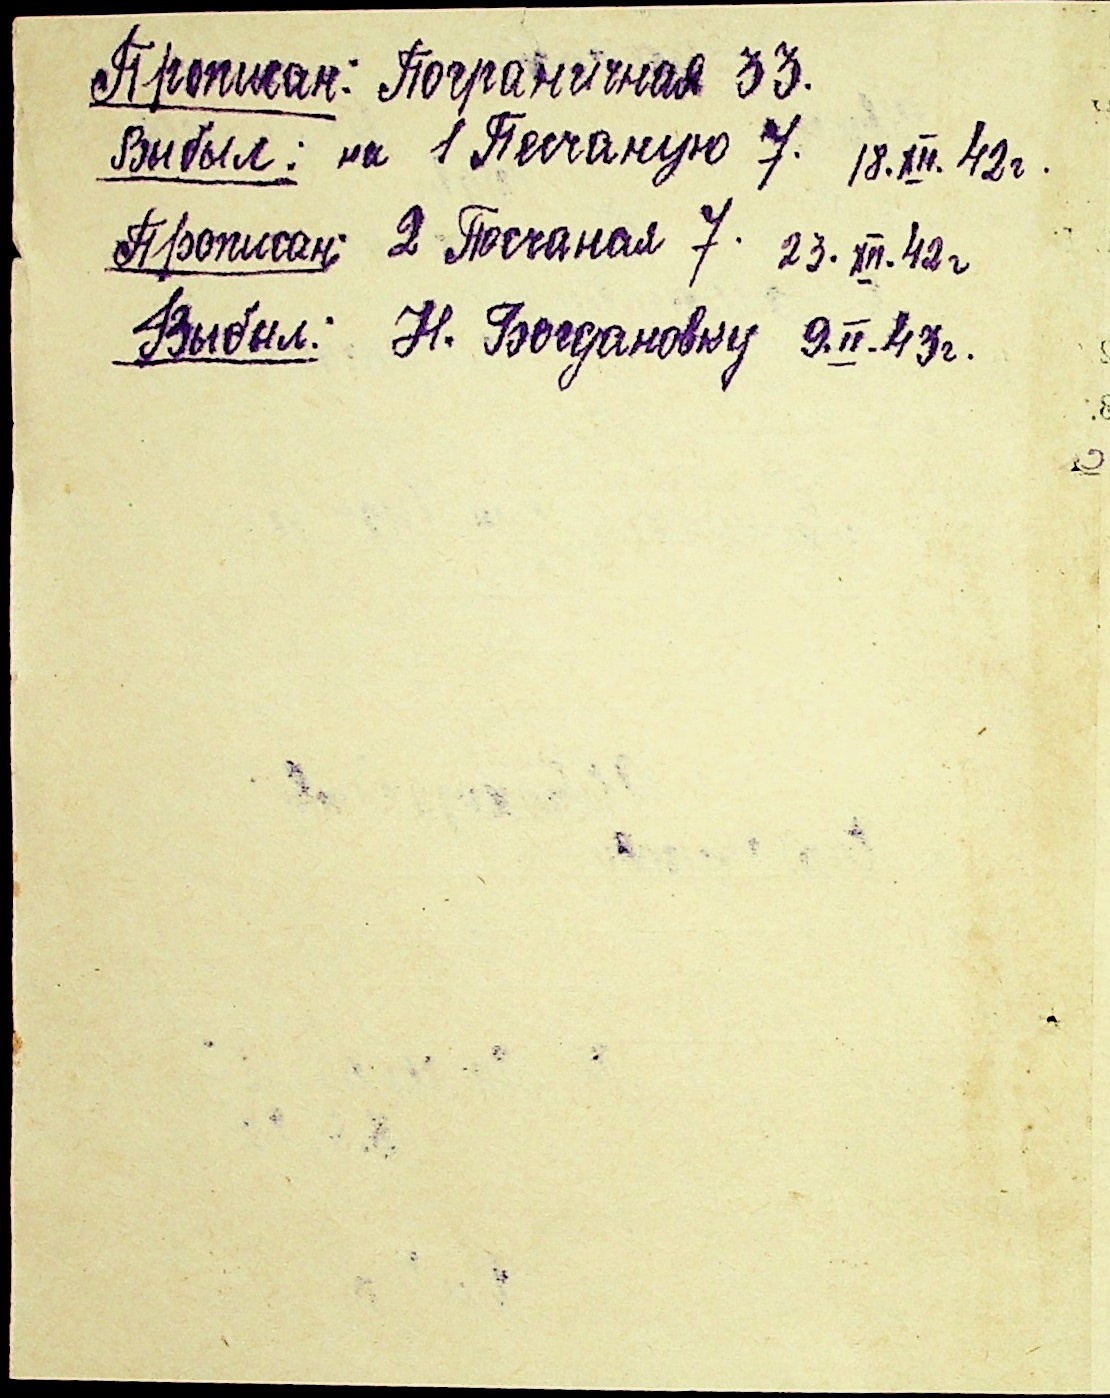 Прописан: Пограничная 33.
Выбыл: на 1 Песчаную 7. 18.XII.42г.
Прописан: 2 Песчаная 7. 23.XII.42г
Выбыл: Н. Богдановку 9.II.43г.